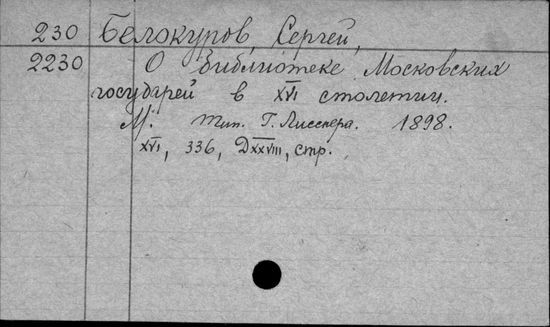 230 Белокуров, Сергей,
2230 О библиотеке Московских
государей в XVI столетии.
М. тип. Г. Лисснера. 1898.
XVI, 336, DXXVIII, стр.